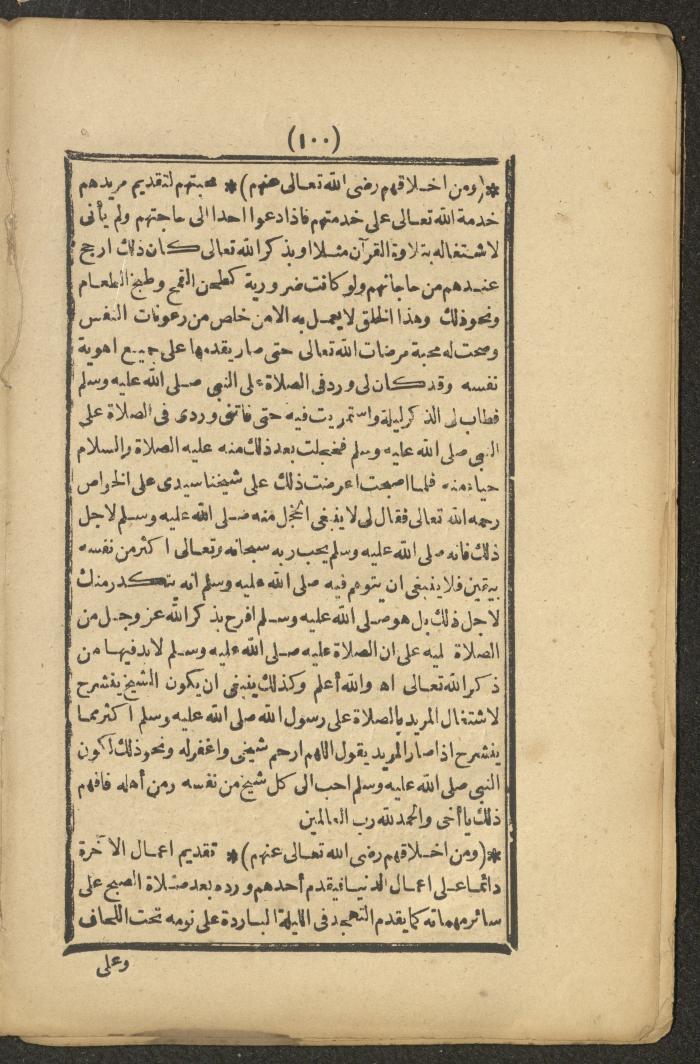 (١٠٠)
*(ومن اخلاقهم رضى الله تعالى عنهم)* محبتهم لتقديم مريدهم
خدمة الله تعالى على خدمتهم فاذا دعوا احدا الى حاجتهم ولم يأتى
لاشتغاله بتلاوة القرآن مثلا او بذكر الله تعالى كان ذلك ارجح
عندهم من حاجاتهم ولو كانت ضرورية كطحن القمح وطبخ الطعام
ونحو ذلك وهذا الخلق لا يعمل به الا من خلص من رعونات النفس
وصحت له محبة مرضات الله تعالى حتى صار يقدمها على جميع اهوية
نفسه وقد كان لى ورد فى الصلاة على النبى صلى الله عليه وسلم
فطاب لى الذكر ليلة واستمريت فيه حتى فاتنى وردى فى الصلاة على
النبى صلى الله عليه وسلم فخجلت بعد ذلك منه عليه الصلاة والسلام
حياء منه فلما اصبحت اعرضت ذلك على شيخنا سيدى على الخواص
رحمه الله تعالى فقال لى لا ينبغى الخجل منه صلى الله عليه وسلم لاجل
ذلك فانه صلى الله عليه وسلم يحب ربه سبحانه وتعالى اكثر من نفسه
بيقين فلا ينبغى ان يتوهم فيه صلى الله عليه وسلم انه يتكدر منك
لاجل ذلك بل هو صلى الله عليه وسلم افرح بذكر الله عز وجل من
الصلاة عليه على ان الصلاة عليه صلى الله عليه وسلم لابد فيها من
ذكر الله تعالى اه والله أعلم وكذلك ينبغى ان يكون الشيخ ينشرح
لاشتغال المريد بالصلاة على رسول الله صلى الله عليه وسلم اكثر مما
ينشرح اذا صار المريد يقول اللهم ارحم شيخى واغفر له ونحو ذلك لكون
النبى صلى الله عليه وسلم احب الى كل شيخ من نفسه ومن أهله فافهم
ذلك يا أخى والحمد لله رب العالمين
*(ومن اخلاقهم رضى الله تعالى عنهم)* تقديم اعمال الآخرة
دائما على اعمال الدنيا فيقدم أحدهم ورده بعد صلاة الصبح على
سائر مهماته كما يقدم التهجد فى الليلة الباردة على نومه تحت اللحاف
وعلى